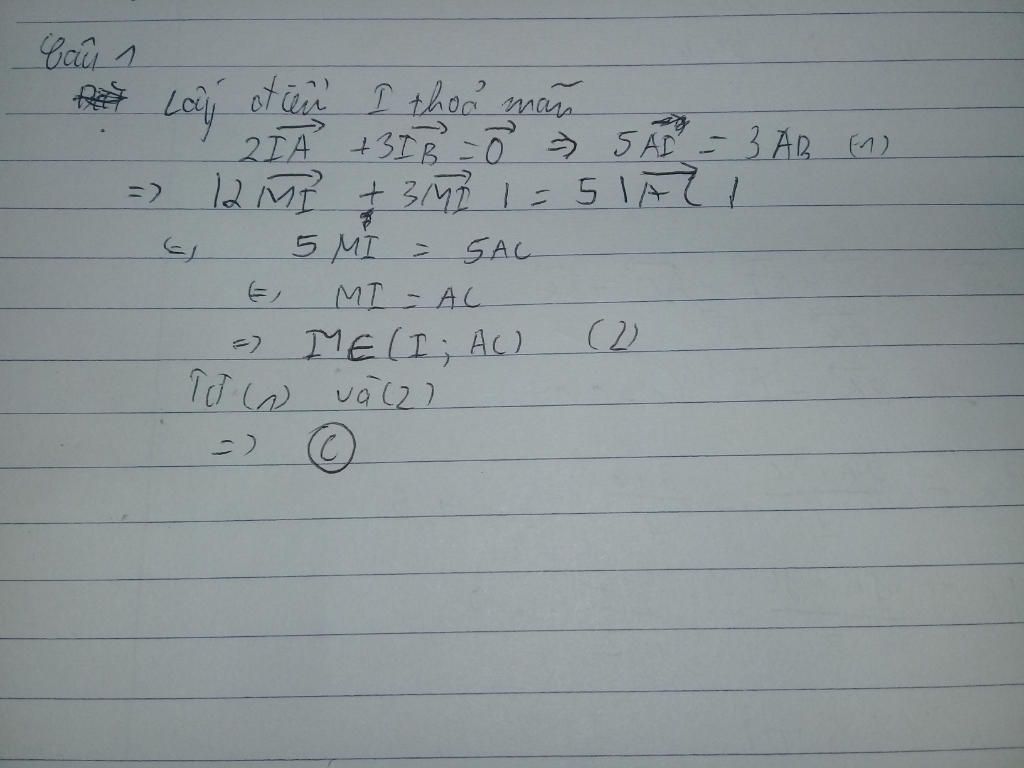 Câu 1
Lấy điểm I thoả mãn
2IA + 3IB = 0 => 5AI = 3AB (1)
=> |2MI + 3MI| = 5|AC|
<=> 5MI = 5AC
<=> MI = AC
=> M∈(I; AC) (2)
Từ (1) và (2)
=> C